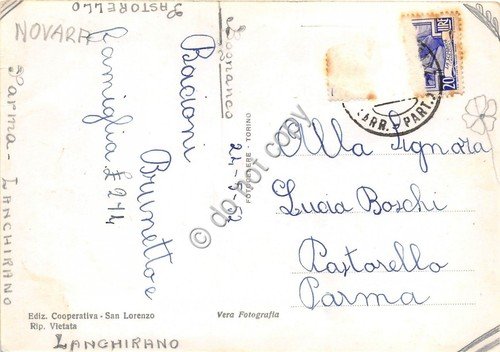 PASTORELLO
NOVARA
Bognanco
24-5-62
Bacioni
Brunetto e
famiglia
Parma - LANGHIRANO
LIRE
20
ARR. PART.
Alla Signora
Lucia Boschi
Pastorello
Parma
FOTOCELERE - TORINO
do not copy
Ediz. Cooperativa - San Lorenzo
Rip. Vietata
Vera Fotografia
LANGHIRANO